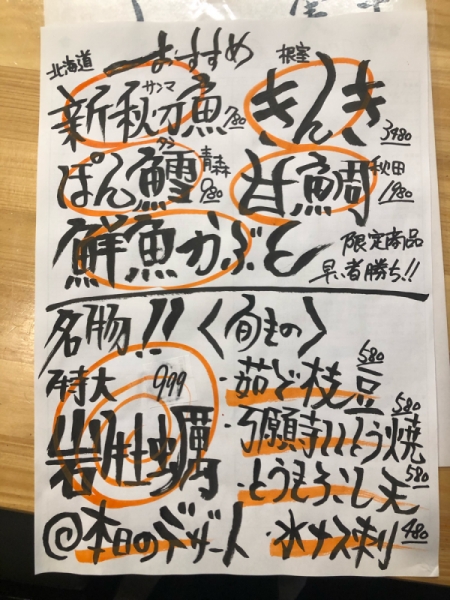 おすすめ
北海道
新秋刀魚 780
サンマ
根室
きんき 3480
ぽん鱈 980
青森
甘鯛 1980
秋田
鮮魚かぶと
限定商品
早い者勝ち!!
名物!!
特大 999
岩牡蠣
@本日のデザート
〈旬もの〉
・茹で枝豆 580
・万願寺とうん焼 580
・とうもろこし天 580
・水ナス刺 480